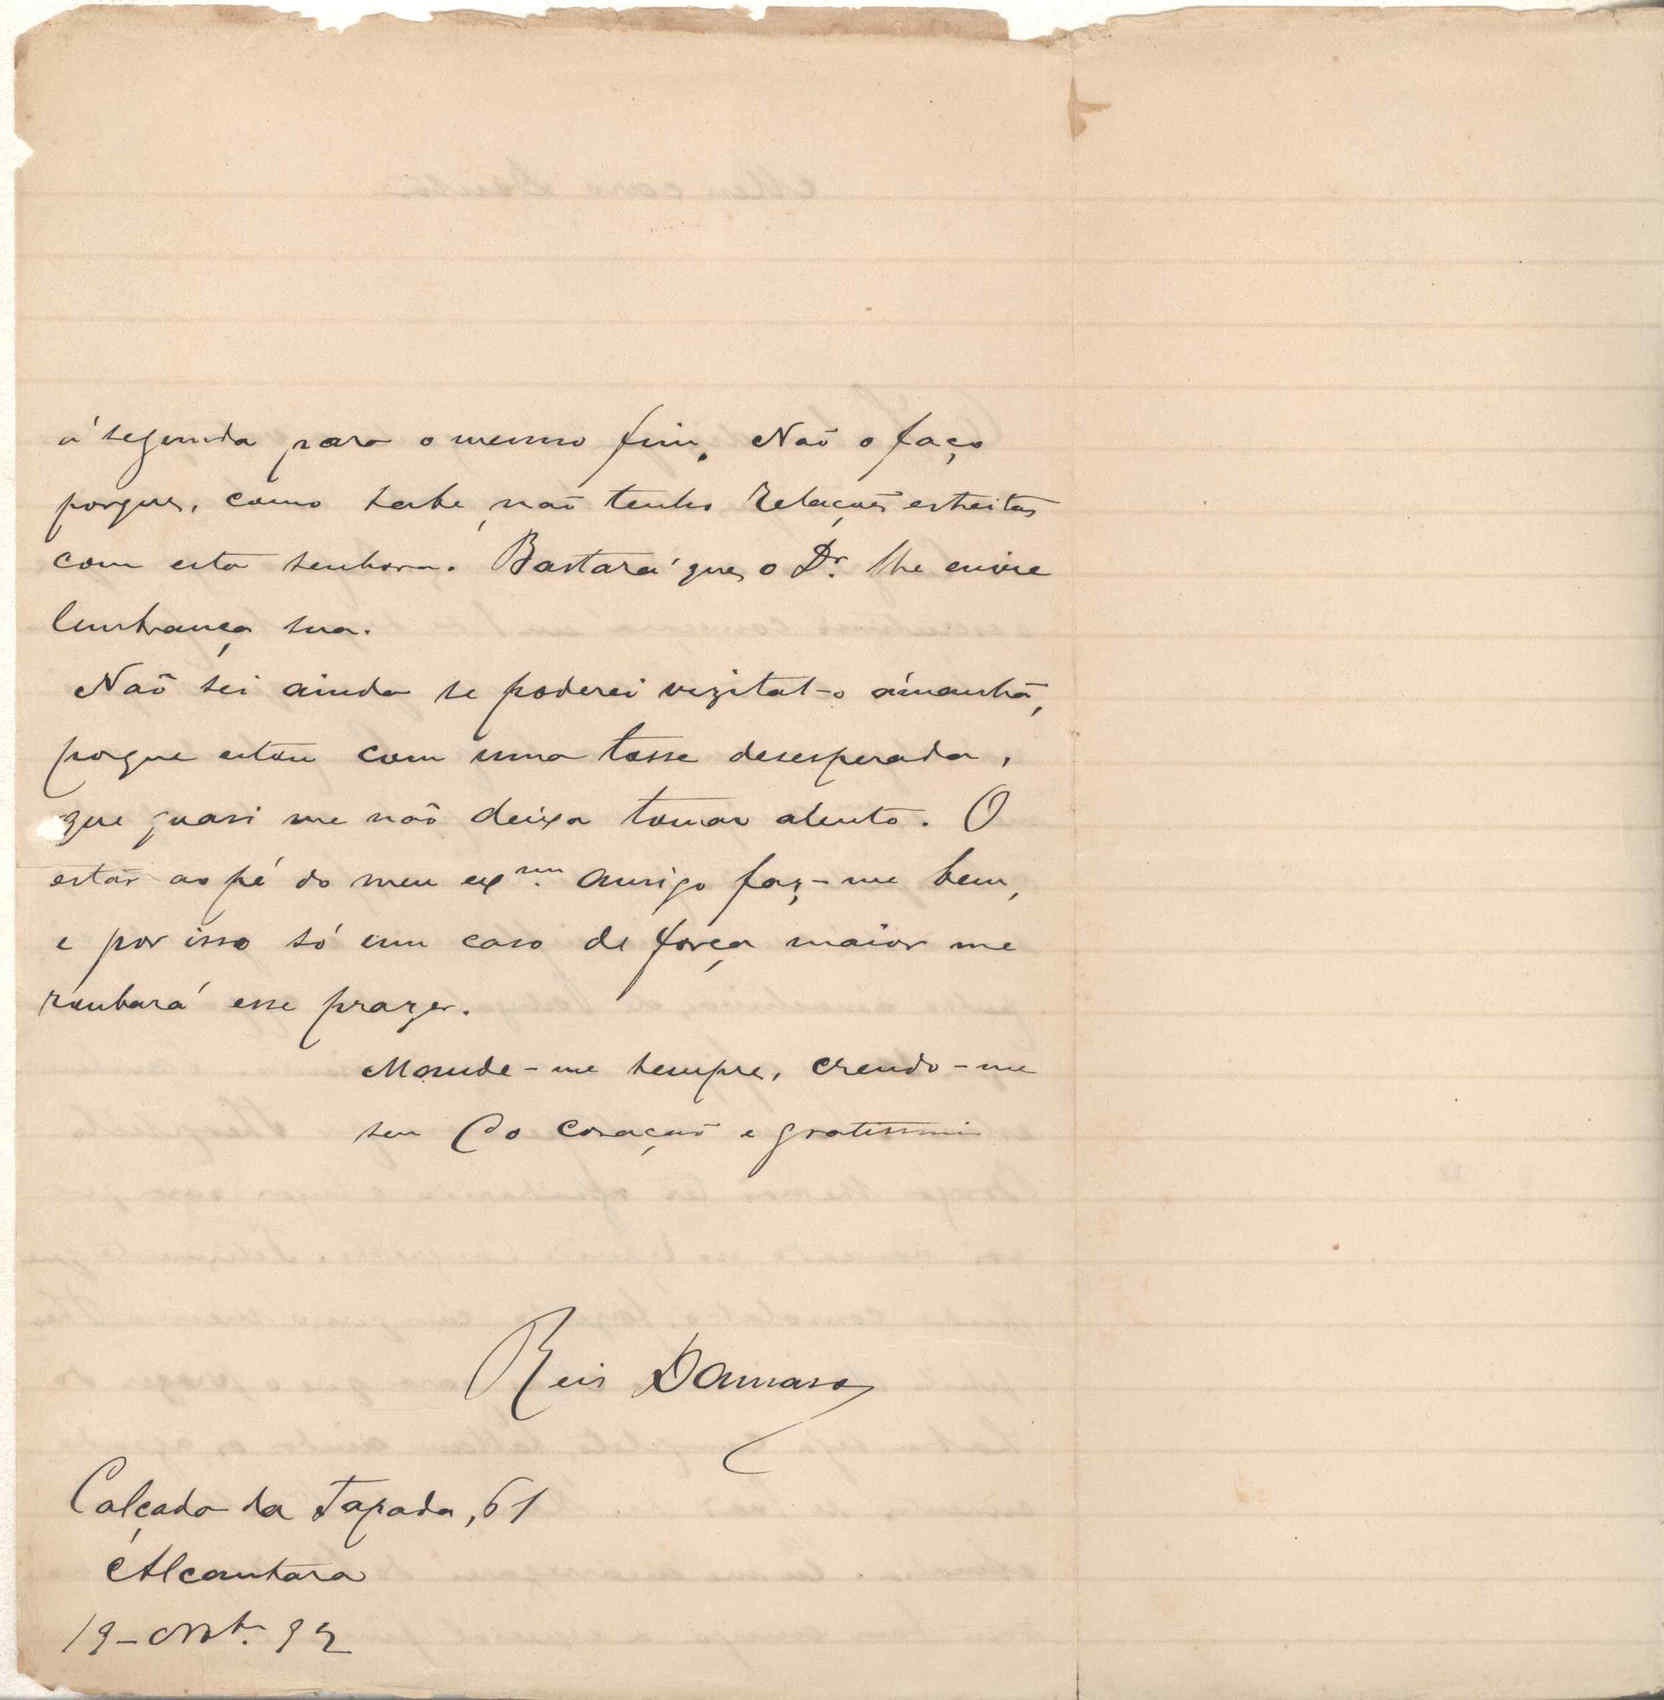 á segunda para o mesmo fim. Não o faço
porque, como sabe, não tenho relações estreitas
com esta senhora. Bastará que o Dr. lhe envie
lembrança sua.
Não sei ainda se poderei vizital-o ámanhã,
porque estou com uma tosse desesperada,
que quasi me não deixa tomar alento. O
estar ao pé do meu exmo. amigo faz-me bem,
e por isso só um caso de força maior me
roubará esse prazer.
Mande-me sempre, crendo-me
seu do coração e gratissimo
Reis Damaso
Calçada da Tapada, 61
Alcantara
19-Out. 92